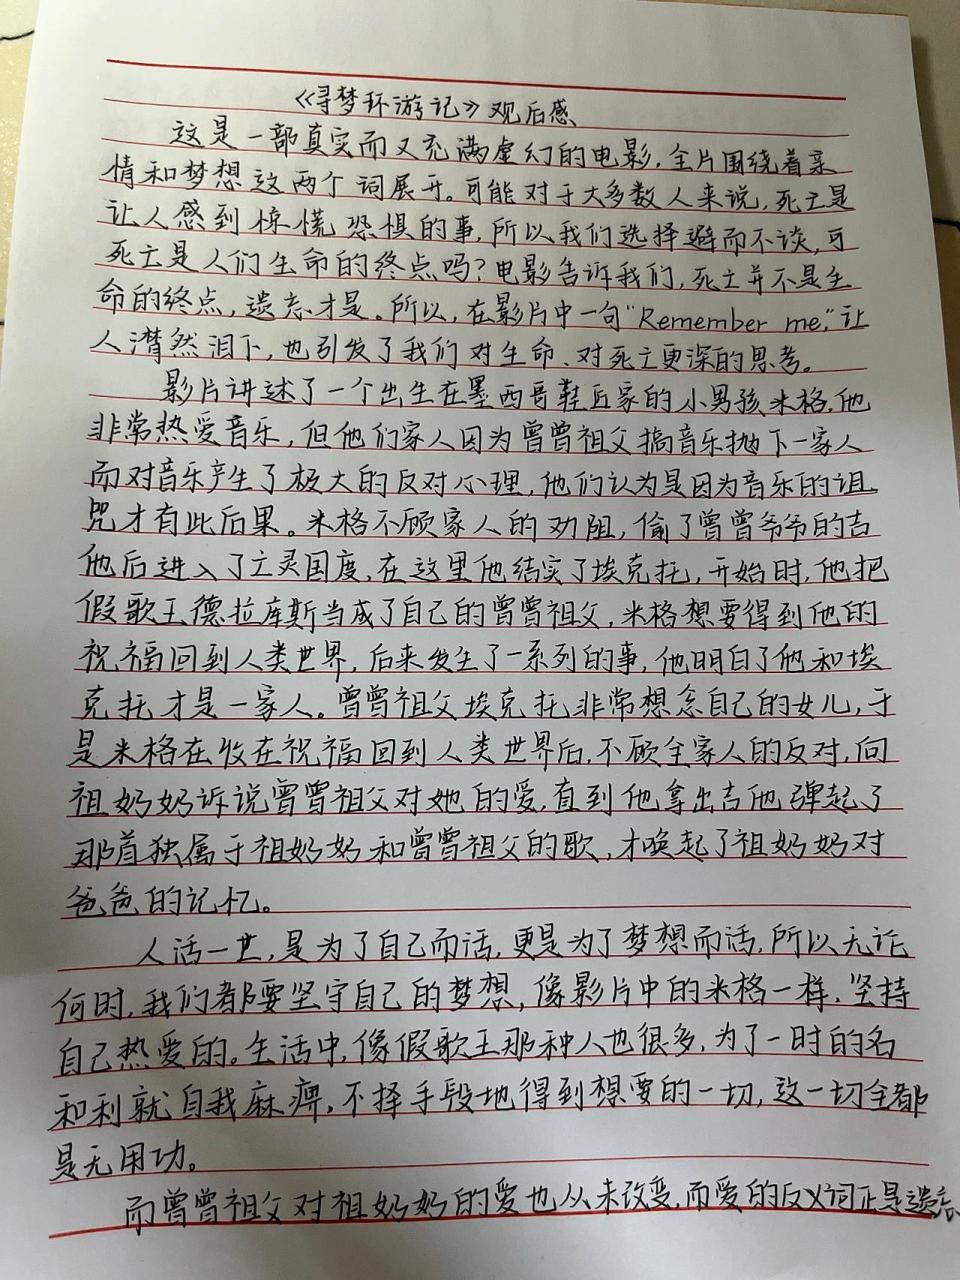 《寻梦环游记》观后感
这是一部真实而又充满虚幻的电影，全片围绕着亲
情和梦想这两个词展开。可能对于大多数人来说，死亡是
让人感到惊慌恐惧的事，所以我们选择避而不谈，可
死亡是人们生命的终点吗？电影告诉我们，死亡并不是生
命的终点，遗忘才是。所以，在影片中一句"Remember me,"让
人潸然泪下，也引发了我们对生命、对死亡更深的思考。
影片讲述了一个出生在墨西哥鞋匠家的小男孩米格，他
非常热爱音乐，但他们家人因为曾曾祖父搞音乐抛下一家人
而对音乐产生了极大的反对心理，他们认为是因为音乐的诅
咒才有此后果。米格不顾家人的劝阻，偷了曾曾爷爷的吉
他后进入了亡灵国度，在这里他结实了埃克托，开始时，他把
假歌王德拉库斯当成了自己的曾曾祖父，米格想要得到他的
祝福回到人类世界，后来发生了一系列的事，他明白了他和埃
克托才是一家人。曾曾祖父埃克托非常想念自己的女儿，于
是米格在收在祝福回到人类世界后，不顾全家人的反对，向
祖奶奶诉说曾曾祖父对她的爱，直到他拿出吉他弹起了
那首独属于祖奶奶和曾曾祖父的歌，才唤起了祖奶奶对
爸爸的记忆。
人活一世，是为了自己而活，更是为了梦想而活，所以无论
何时，我们都要坚守自己的梦想，像影片中的米格一样，坚持
自己热爱的。生活中，像假歌王那种人也很多，为了一时的名
和利就自我麻痹，不择手段地得到想要的一切，这一切全都
是无用功。
而曾曾祖父对祖奶奶的爱也从未改变，而爱的反义词正是遗忘